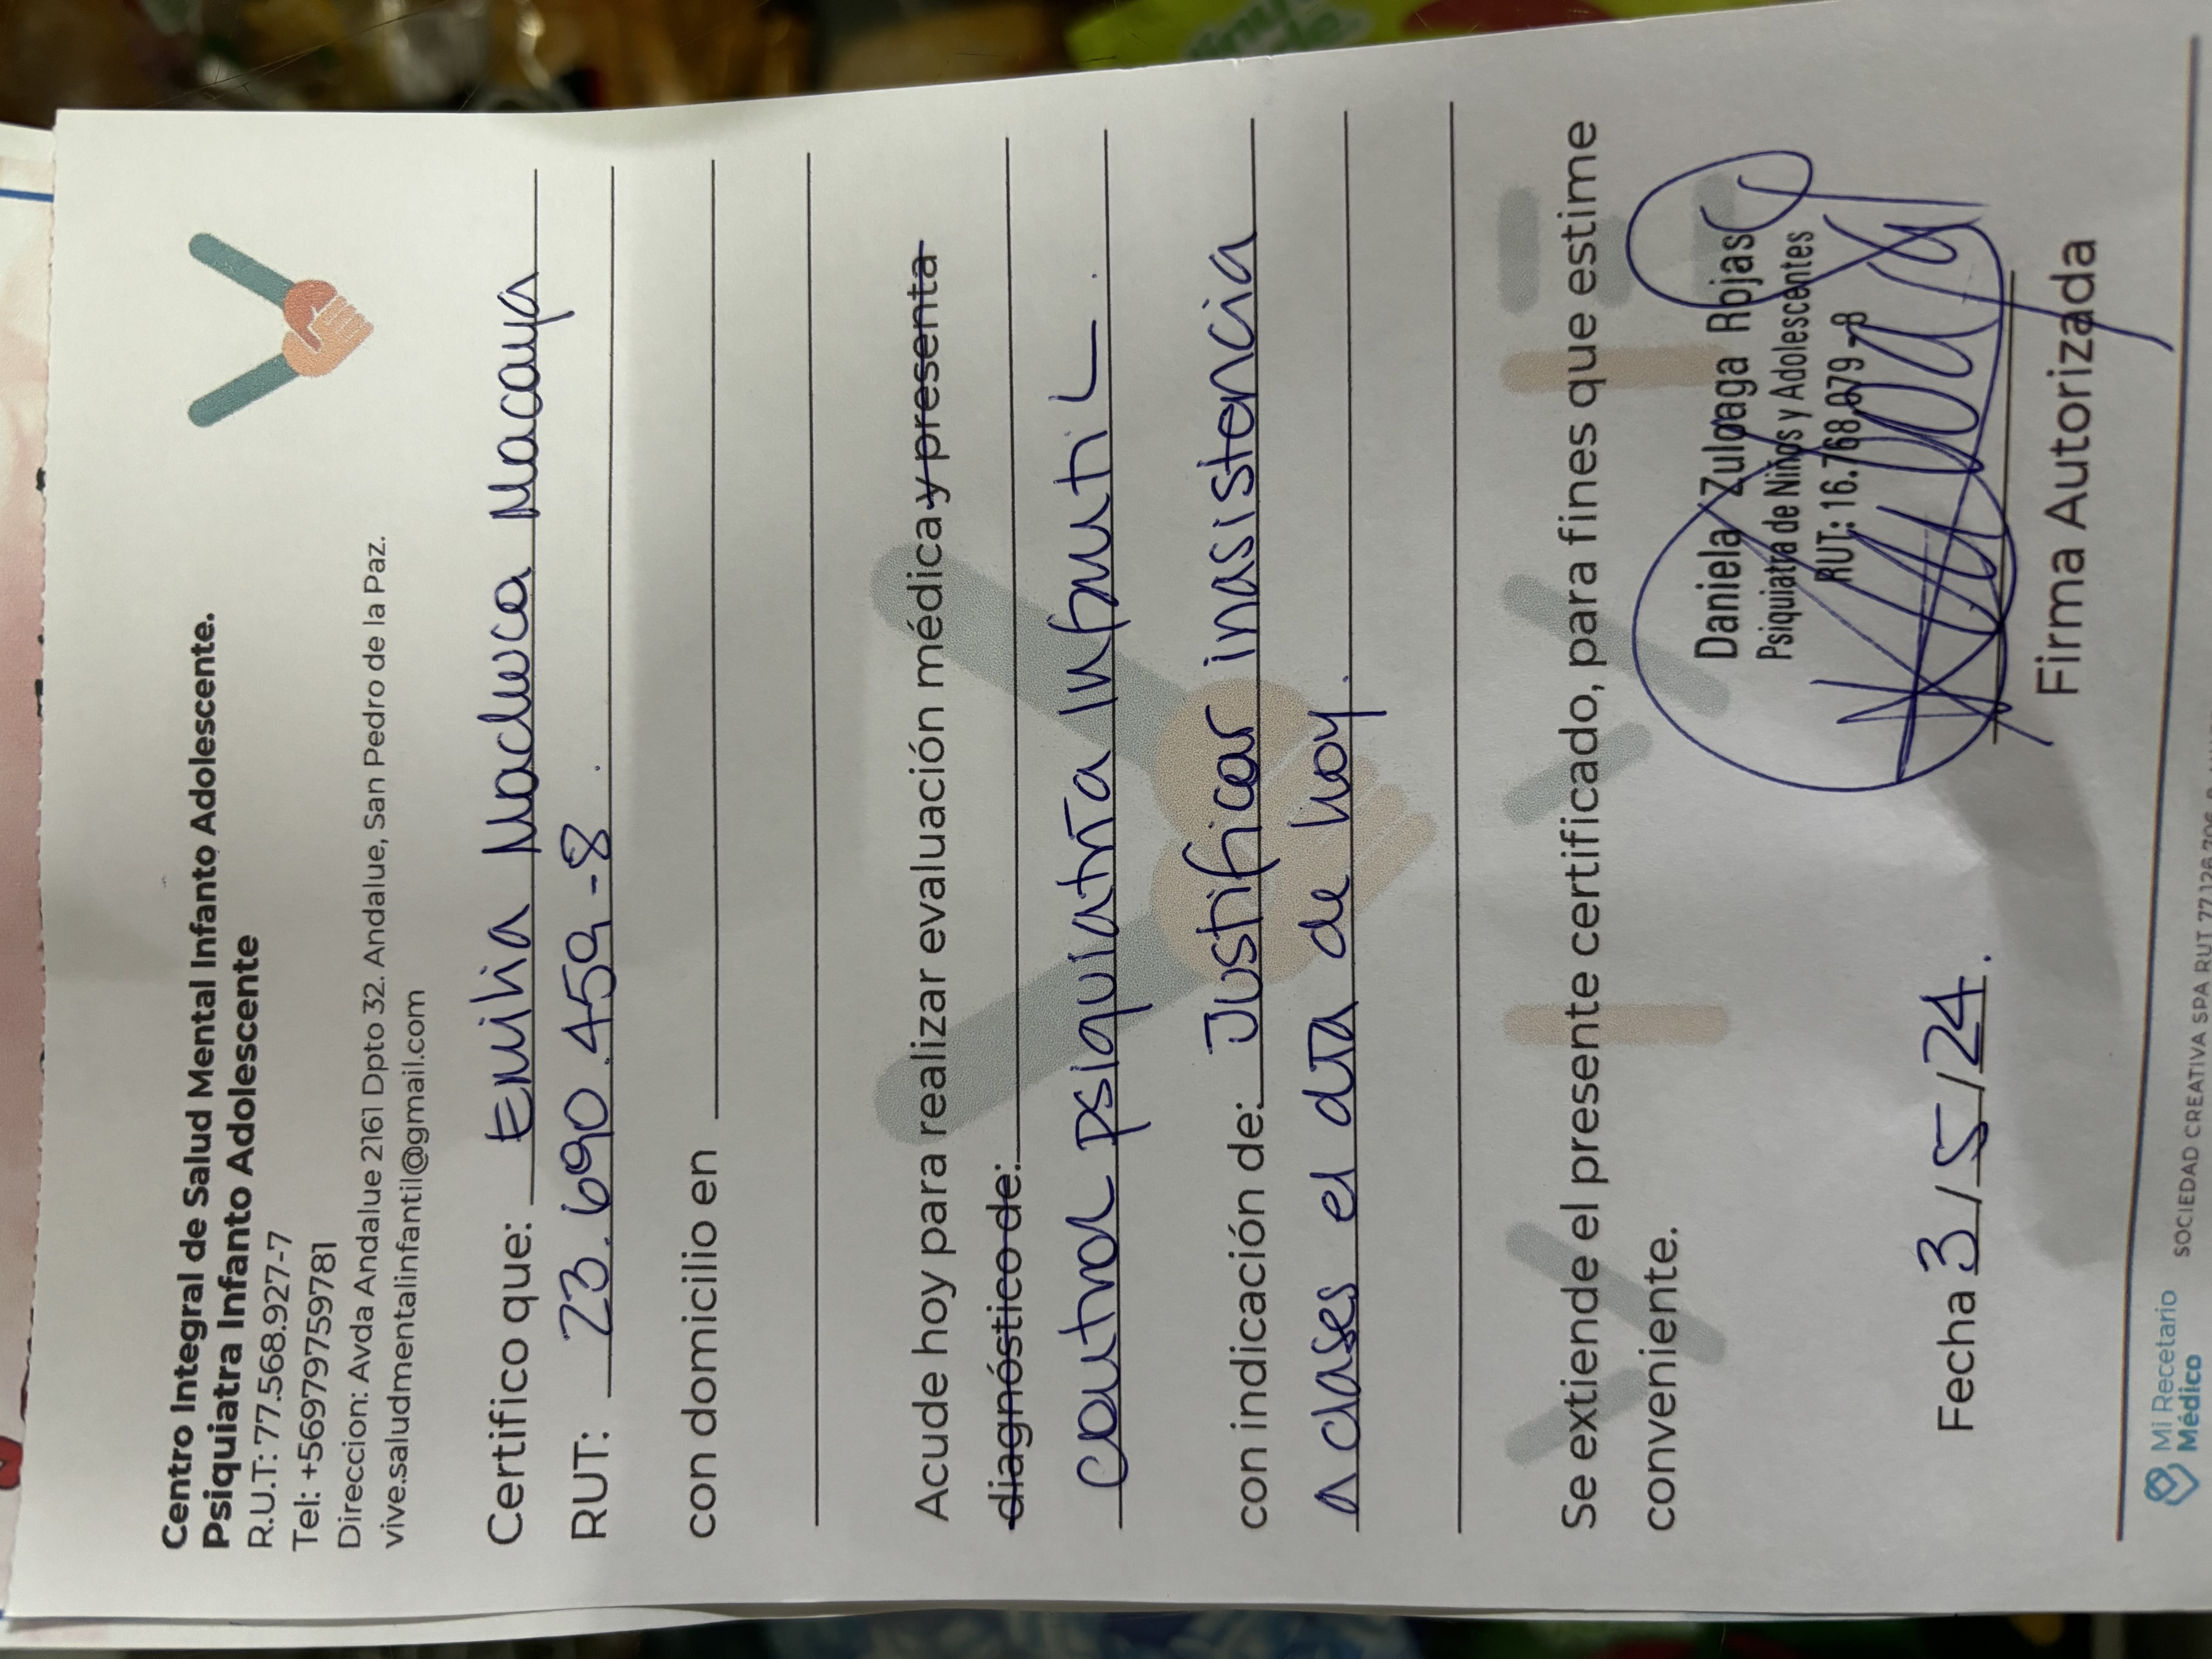 Centro Integral de Salud Mental Infanto Adolescente.
Psiquiatra Infanto Adolescente
R.U.T: 77.568.927-7
Tel: +56979759781
Direccion: Avda Andalue 2161 Dpto 32. Andalue, San Pedro de la Paz.
vive.saludmentalinfantil@gmail.com
Certifico que: Emilia Machuca Macaya
RUT: 23.690.459-8.
con domicilio en
Acude hoy para realizar evaluación médica y presenta
diagnóstico de:
control psiquiatría Infantil.
con indicación de: Justificar inasistencia
a clases el día de hoy.
Se extiende el presente certificado, para fines que estime
conveniente.
Daniela Zuloaga Rojas
Psiquiatra de Niños y Adolescentes
RUT: 16.768.079-8
Fecha 3/5/24.
Firma Autorizada
Mi Recetario
Médico
SOCIEDAD CREATIVA SPA RUT 77.126.706